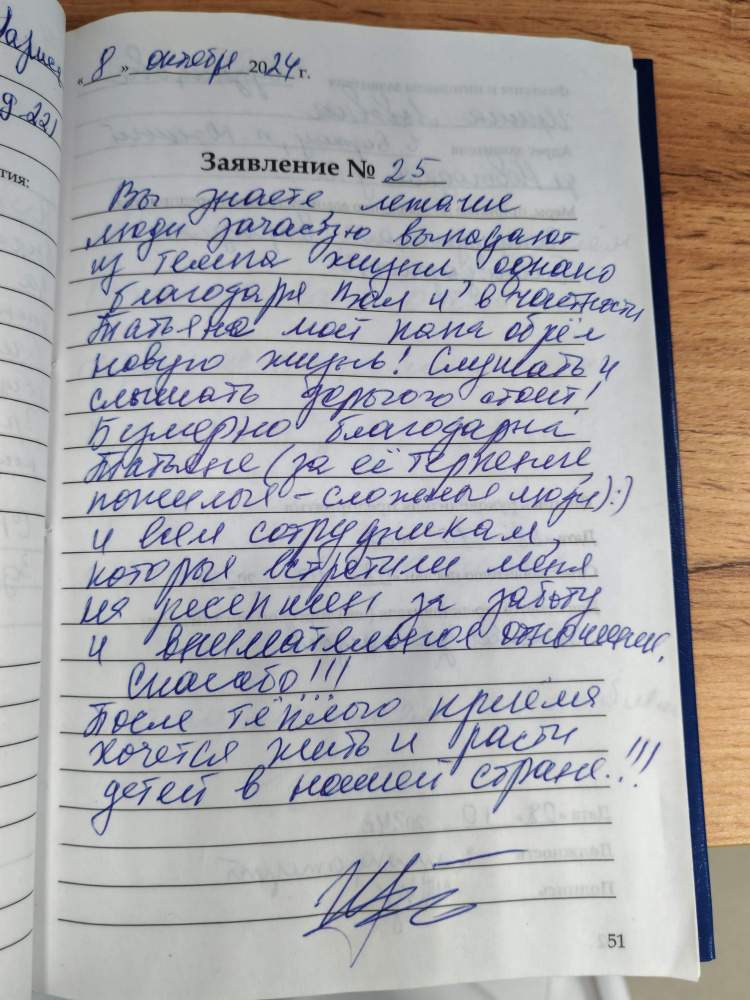 «8» октября 2024 г.
Заявление № 25
Вы знаете лежачие
люди зачастую выпадают
из темпа жизни, однако
благодаря Вам и в частности
Татьяна мой папа обрёл
новую жизнь! Слушать и
слышать дорогого стоит!
Безмерно благодарна
Татьяне (за её терпение,
пожилые - сложные люди):)
и всем сотрудникам,
которые встретили меня
на ресепшен за заботу
и внимательное отношение.
Спасибо!!!
После тёплого приёма
хочется жить и расти
детей в нашей стране!!!
51
22)
тия: